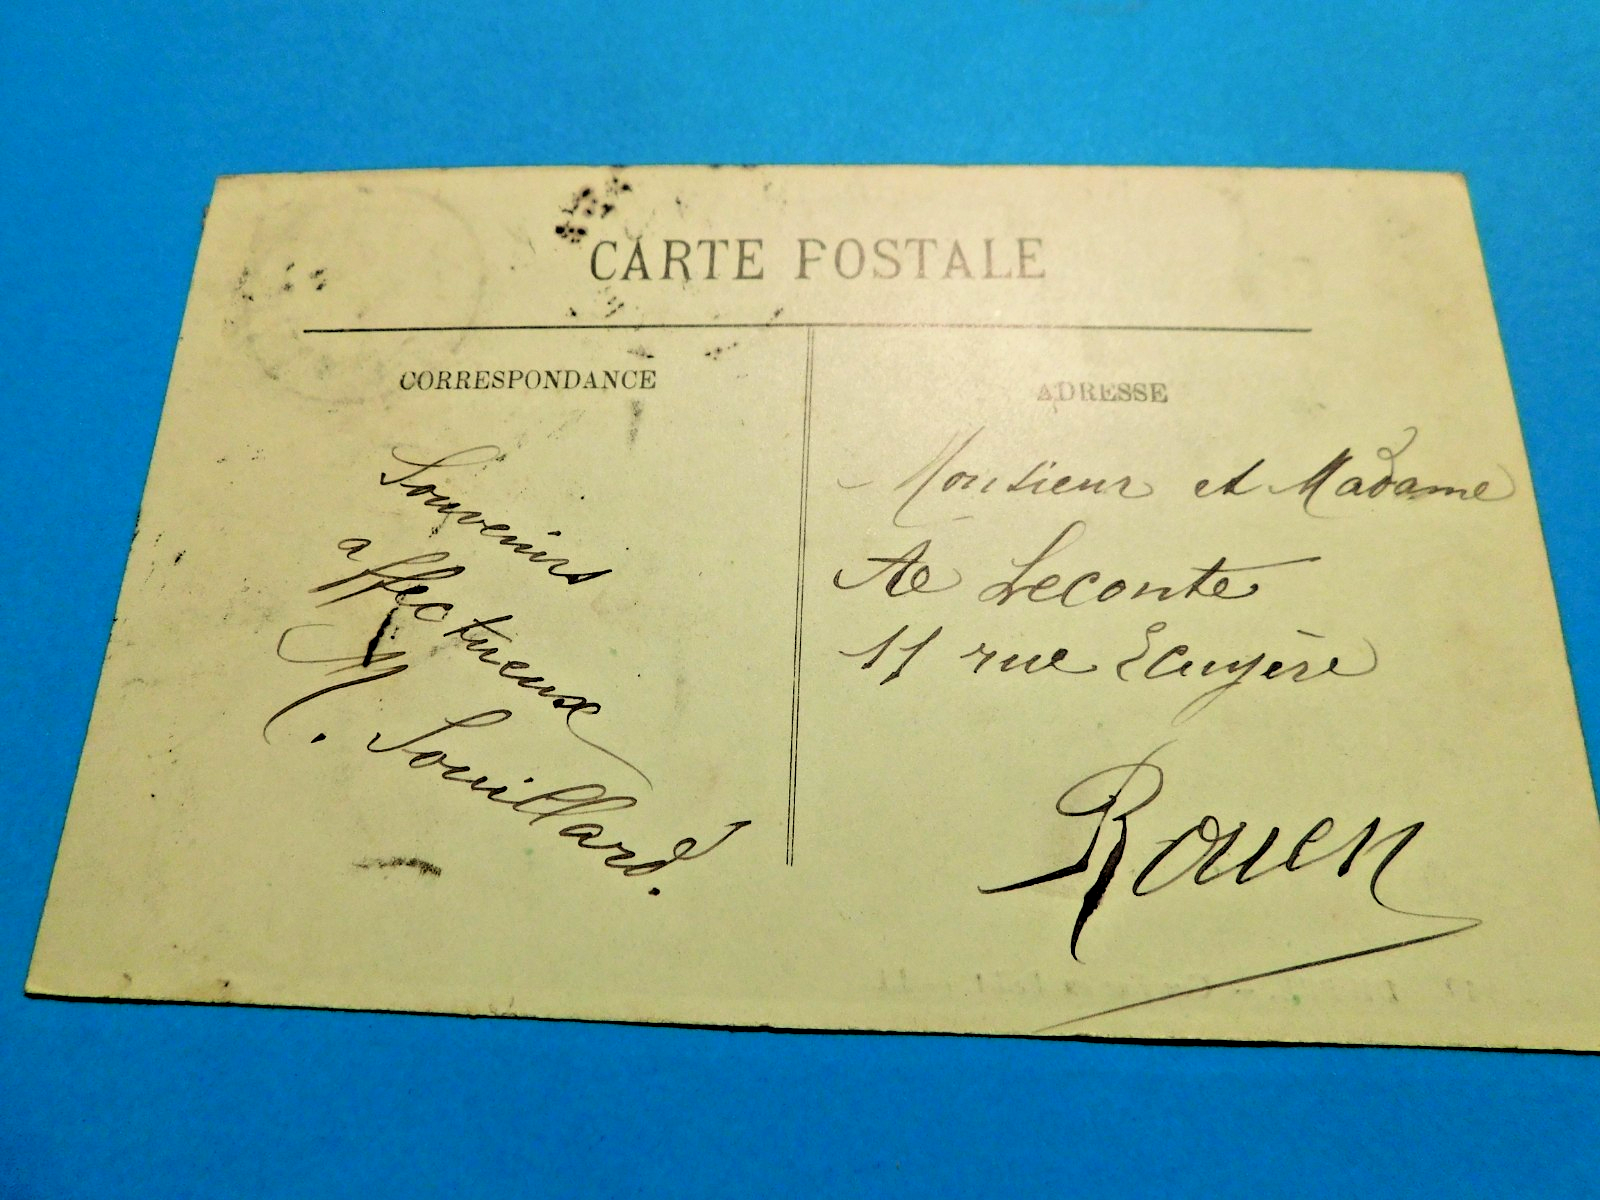 CARTE POSTALE
CORRESPONDANCE
Souvenirs
affectueux
M. Souillard.
ADRESSE
Monsieur et Madame
Leconte
11 rue Ecuyère
Rouen